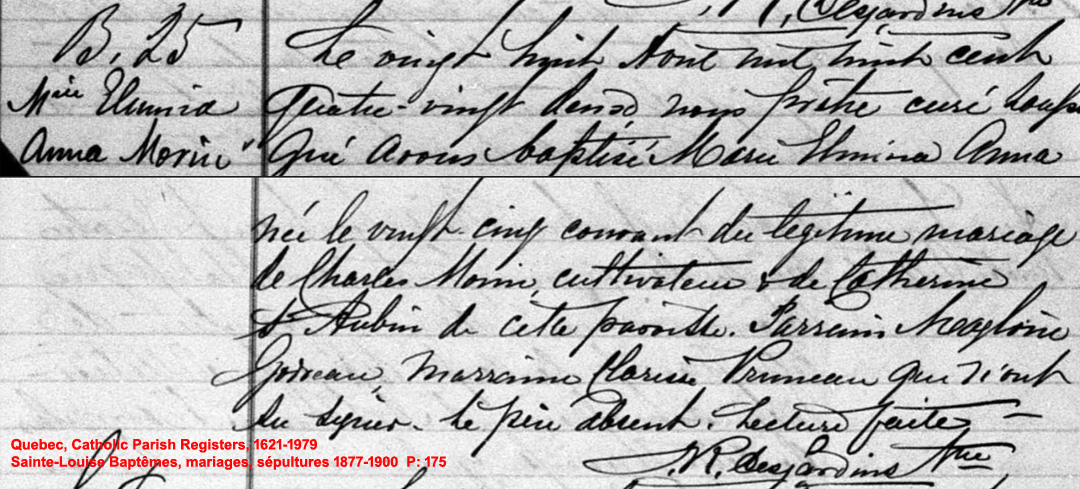 J. R. Desjardins Ptre
B. 25
Mie Elmina
Anna Morin
Le vingt huit Aout mil huit cent
quatre-vingt douze nous prêtre curé soussi
gné avons baptisé Marie Elmina Anna
née le vingt cinq courant du legitime mariage
de Charles Morin cultivateur & de Catherine
St Aubin de cette paroisse. Parrain Magloire
Godreau, marraine Clarisse Pruneau qui n'ont
su signer. Le père absent. Lecture faite
J. R. Desjardins Ptre
Quebec, Catholic Parish Registers, 1621-1979
Sainte-Louise Baptêmes, mariages, sépultures 1877-1900 P: 175